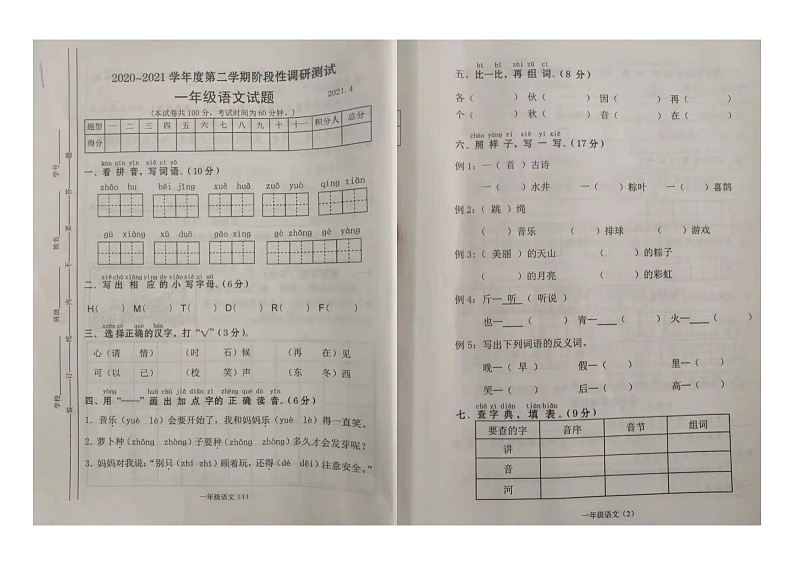 2020~2021 学年度第二学期阶段性调研测试
一年级语文试题
2021.4
(本试卷共100分,考试时间为60分钟。)
题型 一 二 三 四 五 六 七 八 九 十 十一 积分人 总分
得分
学号
姓名
班级
学校
装 订 线 内 不 要 答 题
kàn pīn yīn xiě cí yǔ
一、看 拼 音,写词语。(10分)
zhāo hu běi jīng xuě huā zuó yuò qíng tiān
gù xiāng xǔ duō gāo xìng gè zhǒng gè yàng
xiě chū xiāng yìng de xiǎo xiě zì mǔ
二、写 出 相 应 的 小 写 字母。(6分)
H( ) M( ) T( ) D( ) R( ) F( )
xuǎn zé què hàn
三、选择正确的汉字,打“√”(3分)。
心(请 情) (时 石)候 (再 在)见
可(以 已) (校 笑)声 (东 冬)西
yòng huà chū jiā diǎn zì zhèng què dú yīn
四、用“——”画 出 加 点 字 的 正 确 读 音。(6分)
1、音乐(yuè lè)会要开始了,我和妈妈乐(yuè lè)得一直笑。
2、萝卜种(zhǒng zhòng)子要种(zhǒng zhòng)多久才会发芽呢?
3、妈妈对我说:“别只(zhī zhǐ)顾着玩,还得(dé děi)注意安全。”
一年级语文(1)
bǐ bǐ zài zǔ cí
五、比一比,再 组 词。(8分)
各( ) 伙( ) 因( ) 再( )
个( ) 秋( ) 音( ) 在( )
zhào yàng zi xiě yì xiě
六、照 样 子,写 一 写。(17分)
例1:一(首)古诗
一( )水井 一( )粽叶 一( )喜鹊
例2:(跳)绳
( )音乐 ( )排球 ( )游戏
例3:(美丽)的天山 ( )的粽子
( )的月亮 ( )的彩虹
例4:斤— 听 (听说)
也—____( ) 青—____( ) 火—____( )
例5:写出下列词语的反义词。
晚—(早) 假—( ) 里—( )
哭—( ) 后—( ) 高—( )
chá zì diǎn tián biǎo
七、查字典,填 表。(9分)
要查的字 音序 音节 组词
讲
音
河
一年级语文(2)